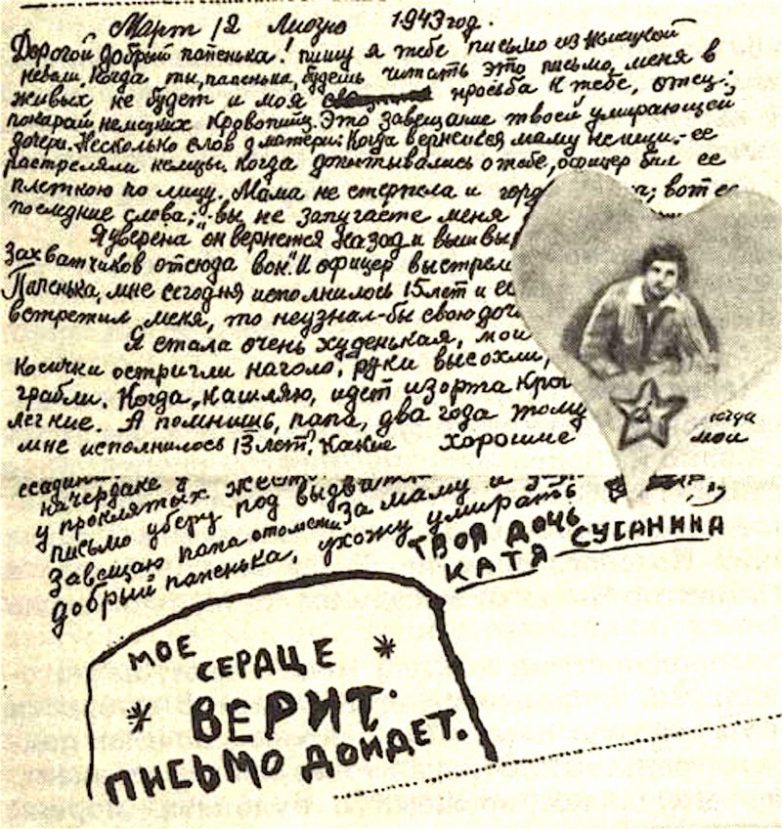 Март 12 Лиозно 1943 год.
Дорогой добрый папенька! пишу я тебе письмо из немецкой
неволи. Когда ты, папенька, будешь читать это письмо, меня в
живых не будет и моя просьба к тебе, отец:
покарай немецких кровопийц. Это завещание твоей умирающей
дочери. Несколько слов о матери: Когда вернешься маму не ищи. - ее
растреляли немцы. Когда допытывались о тебе, офицер бил ее
плеткою по лицу. Мама не стерпела и вот ее
последние слова; "вы не запугаете меня
Я уверена он вернется назад и
захватчиков отсюда вон". И офицер
Папенька, мне сегодня исполнилось 15 лет и
встретил меня, то неузнал-бы свою
Я стала очень худенькая, мои
косички остригли наголо, руки высохли,
грабли. Когда, кашляю, идет изорта
легкие. А помнишь, папа, два года тому
мне исполнилось 13 лет? Какие хорошие мои
на чердаке
у проклятых
письмо уберу под
Завещаю папа отомсти за маму и
добрый папенька, ухожу умирать
ТВОЯ ДОЧЬ
КАТЯ СУСАНИНА
МОЕ
СЕРДЦЕ
ВЕРИТ.
ПИСЬМО ДОЙДЕТ.